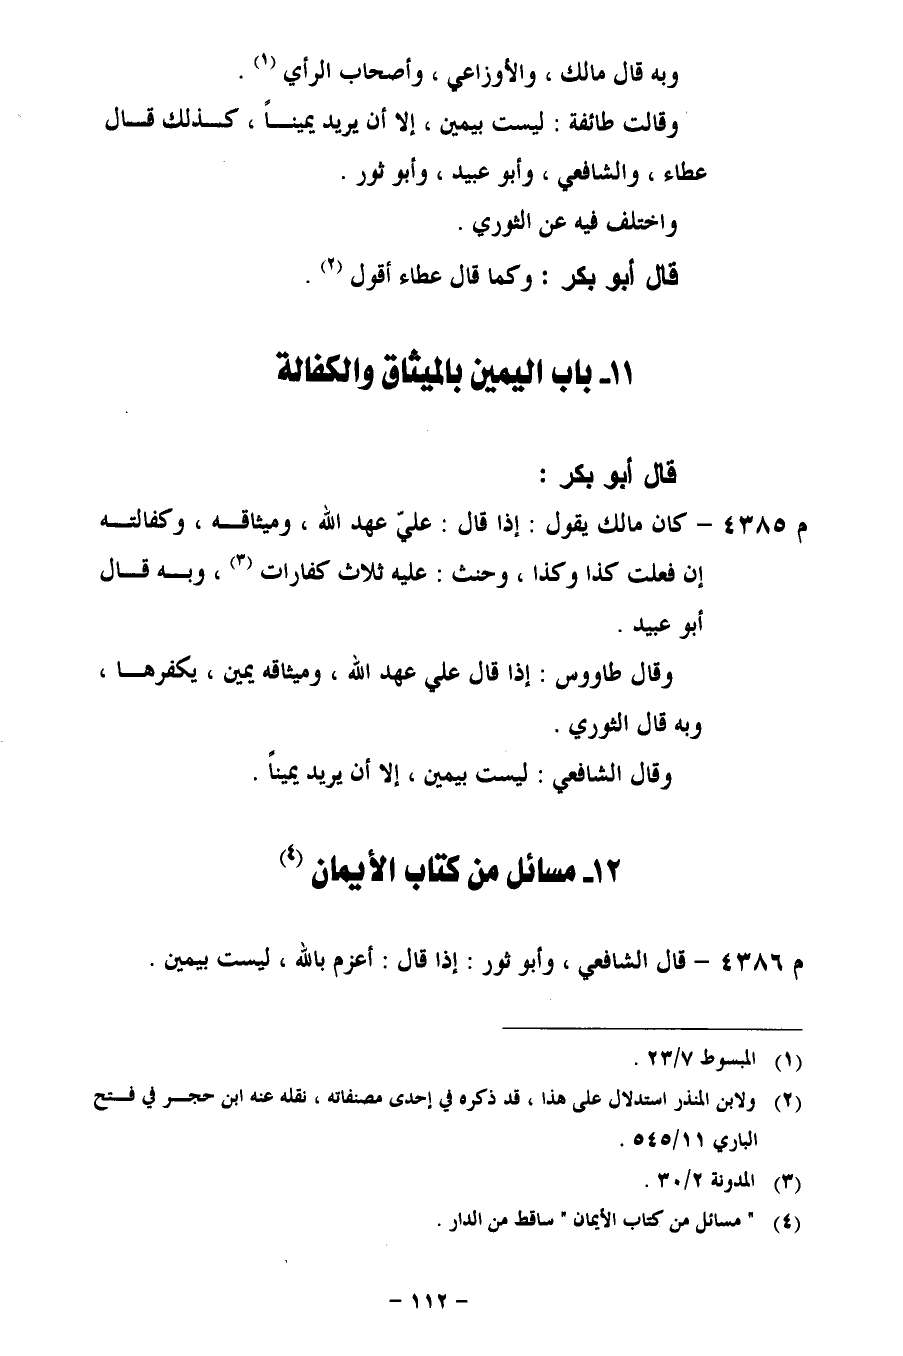 وبه قال مالك ، والأوزاعي ، وأصحاب الرأي (١) .
وقالت طائفة : ليست بيمين ، إلا أن يريد يمينـــاً ، كـــذلك قـــال
عطاء ، والشافعي ، وأبو عبيد ، وأبو ثور .
واختلف فيه عن الثوري .
قال أبو بكر : وكما قال عطاء أقول (٢) .
١١ـ باب اليمين بالميثاق والكفالة
قال أبو بكر :
م ٤٣٨٥ – كان مالك يقول : إذا قال : عليّ عهد الله ، وميثاقـــه ، وكفالتـــه
إن فعلت كذا وكذا ، وحنث : عليه ثلاث كفارات (٣) ، وبـــه قـــال
أبو عبيد .
وقال طاووس : إذا قال علي عهد الله ، وميثاقه يمين ، يكفرهـــا ،
وبه قال الثوري .
وقال الشافعي : ليست بيمين ، إلا أن يريد يميناً .
١٢ـ مسائل من كتاب الأيمان (٤)
م ٤٣٨٦ – قال الشافعي ، وأبو ثور : إذا قال : أعزم بالله ، ليست بيمين .
(١) المبسوط ٢٣/٧ .
(٢) ولابن المنذر استدلال على هذا ، قد ذكره في إحدى مصنفاته ، نقله عنه ابن حجـــر في فـــتح
الباري ٥٤٥/١١ .
(٣) المدونة ٣٠/٢ .
(٤) " مسائل من كتاب الأيمان " ساقط من الدار .
– ١١٢ –